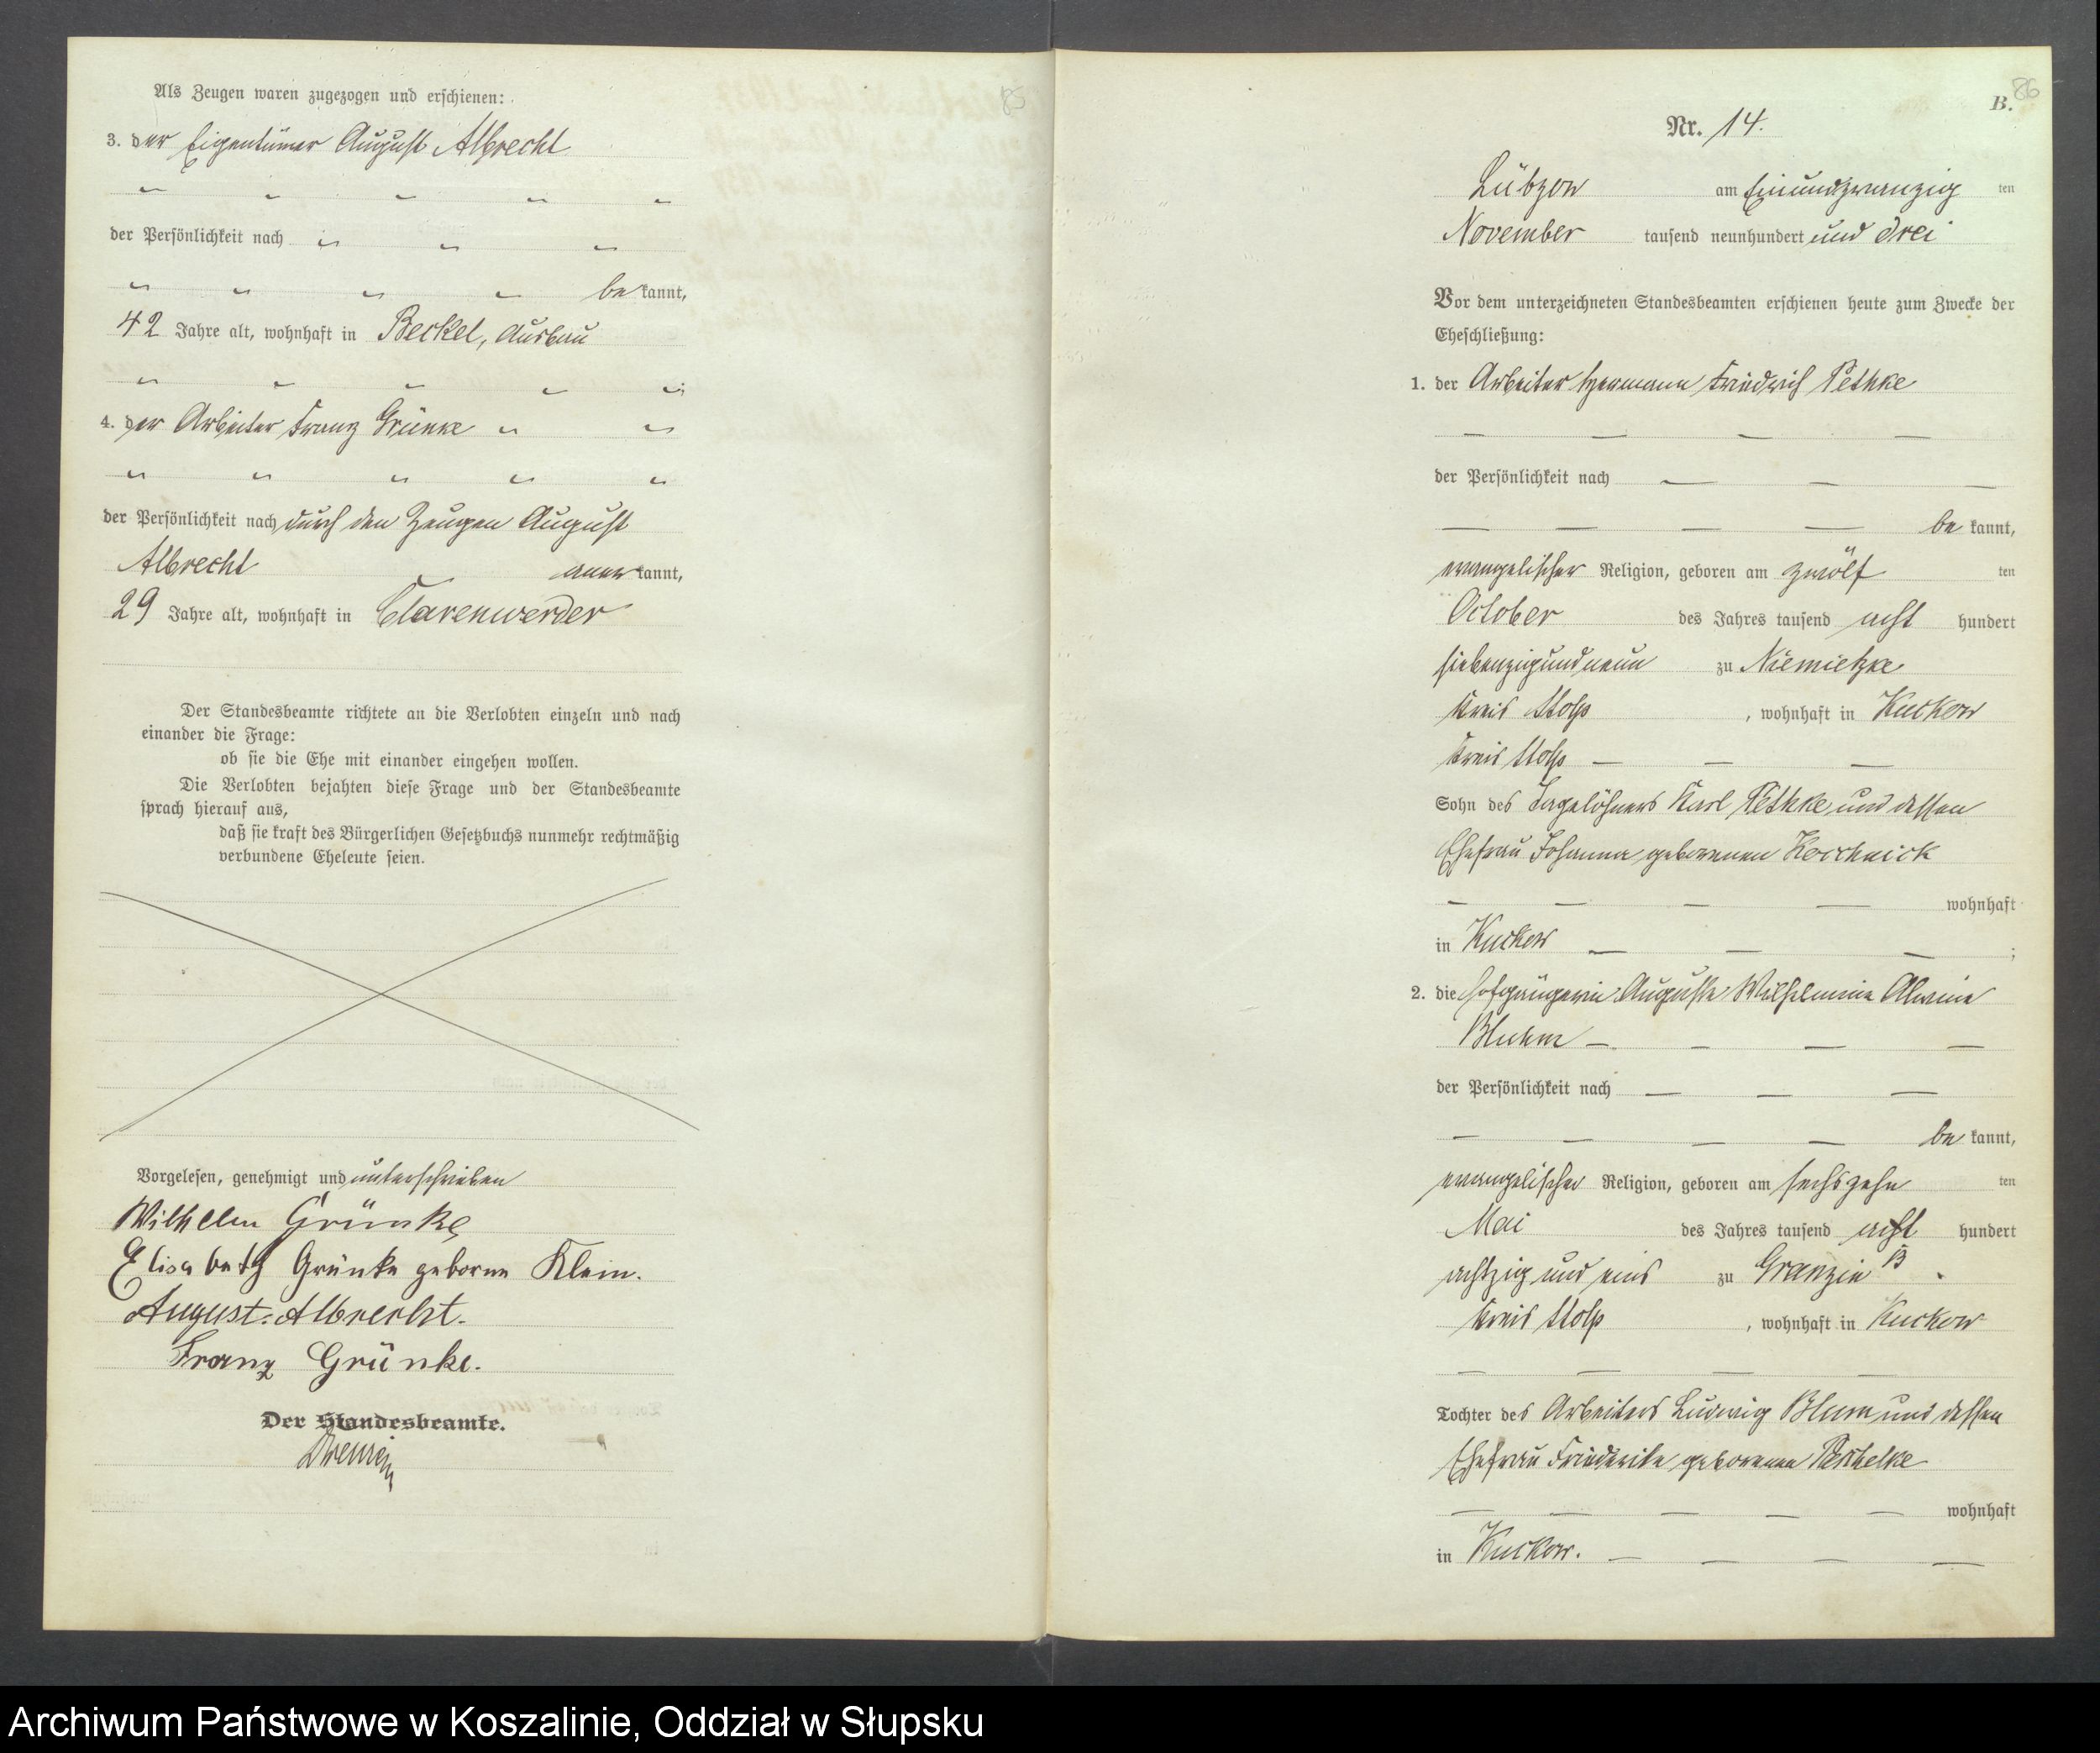 85
Als Zeugen waren zugezogen und erschienen:
3. der Eigentümer August Albrecht
der Persönlichkeit nach
bekannt,
42 Jahre alt, wohnhaft in Beckel, Ausbau
4. der Arbeiter Franz Grünke
der Persönlichkeit nach durch den Zeugen August
Albrecht anerkannt,
29 Jahre alt, wohnhaft in Clarenwerder
Der Standesbeamte richtete an die Verlobten einzeln und nach
einander die Frage:
ob sie die Ehe mit einander eingehen wollen.
Die Verlobten bejahten diese Frage und der Standesbeamte
sprach hierauf aus,
daß sie kraft des Bürgerlichen Gesetzbuchs nunmehr rechtmäßig
verbundene Eheleute seien.
Vorgelesen, genehmigt und unterschrieben
Wilhelm Grünke
Elisabeth Grünke geborne Klein.
August Albrecht.
Franz Grünke.
Der Standesbeamte.
86
B.
Nr. 14.
Lübzow am Einundzwanzigten
November tausend neunhundert und drei
Vor dem unterzeichneten Standesbeamten erschienen heute zum Zwecke der
Eheschließung:
1. der Arbeiter Hermann Friedrich Pethke
der Persönlichkeit nach
bekannt,
evangelischer Religion, geboren am zwölften
October des Jahres tausend acht hundert
siebenzigundneun zu Niemietzke
Kreis Stolp, wohnhaft in Kuckow
Kreis Stolp
Sohn des Tagelöhners Karl Pethke und dessen
Ehefrau Johanna geborenen
wohnhaft
in Kuckow ;
2. die Hofgängerin Auguste Wilhelmine Alwine
Bluhm
der Persönlichkeit nach
bekannt,
evangelischer Religion, geboren am sechszehnten
Mai des Jahres tausend acht hundert
achtzig und eins zu Granzin B
Kreis Stolp, wohnhaft in Kuckow
Tochter des Arbeiters Ludwig Blum und dessen
Ehefrau Friederike geborenen
wohnhaft
in Kuckow.
Archiwum Państwowe w Koszalinie, Oddział w Słupsku